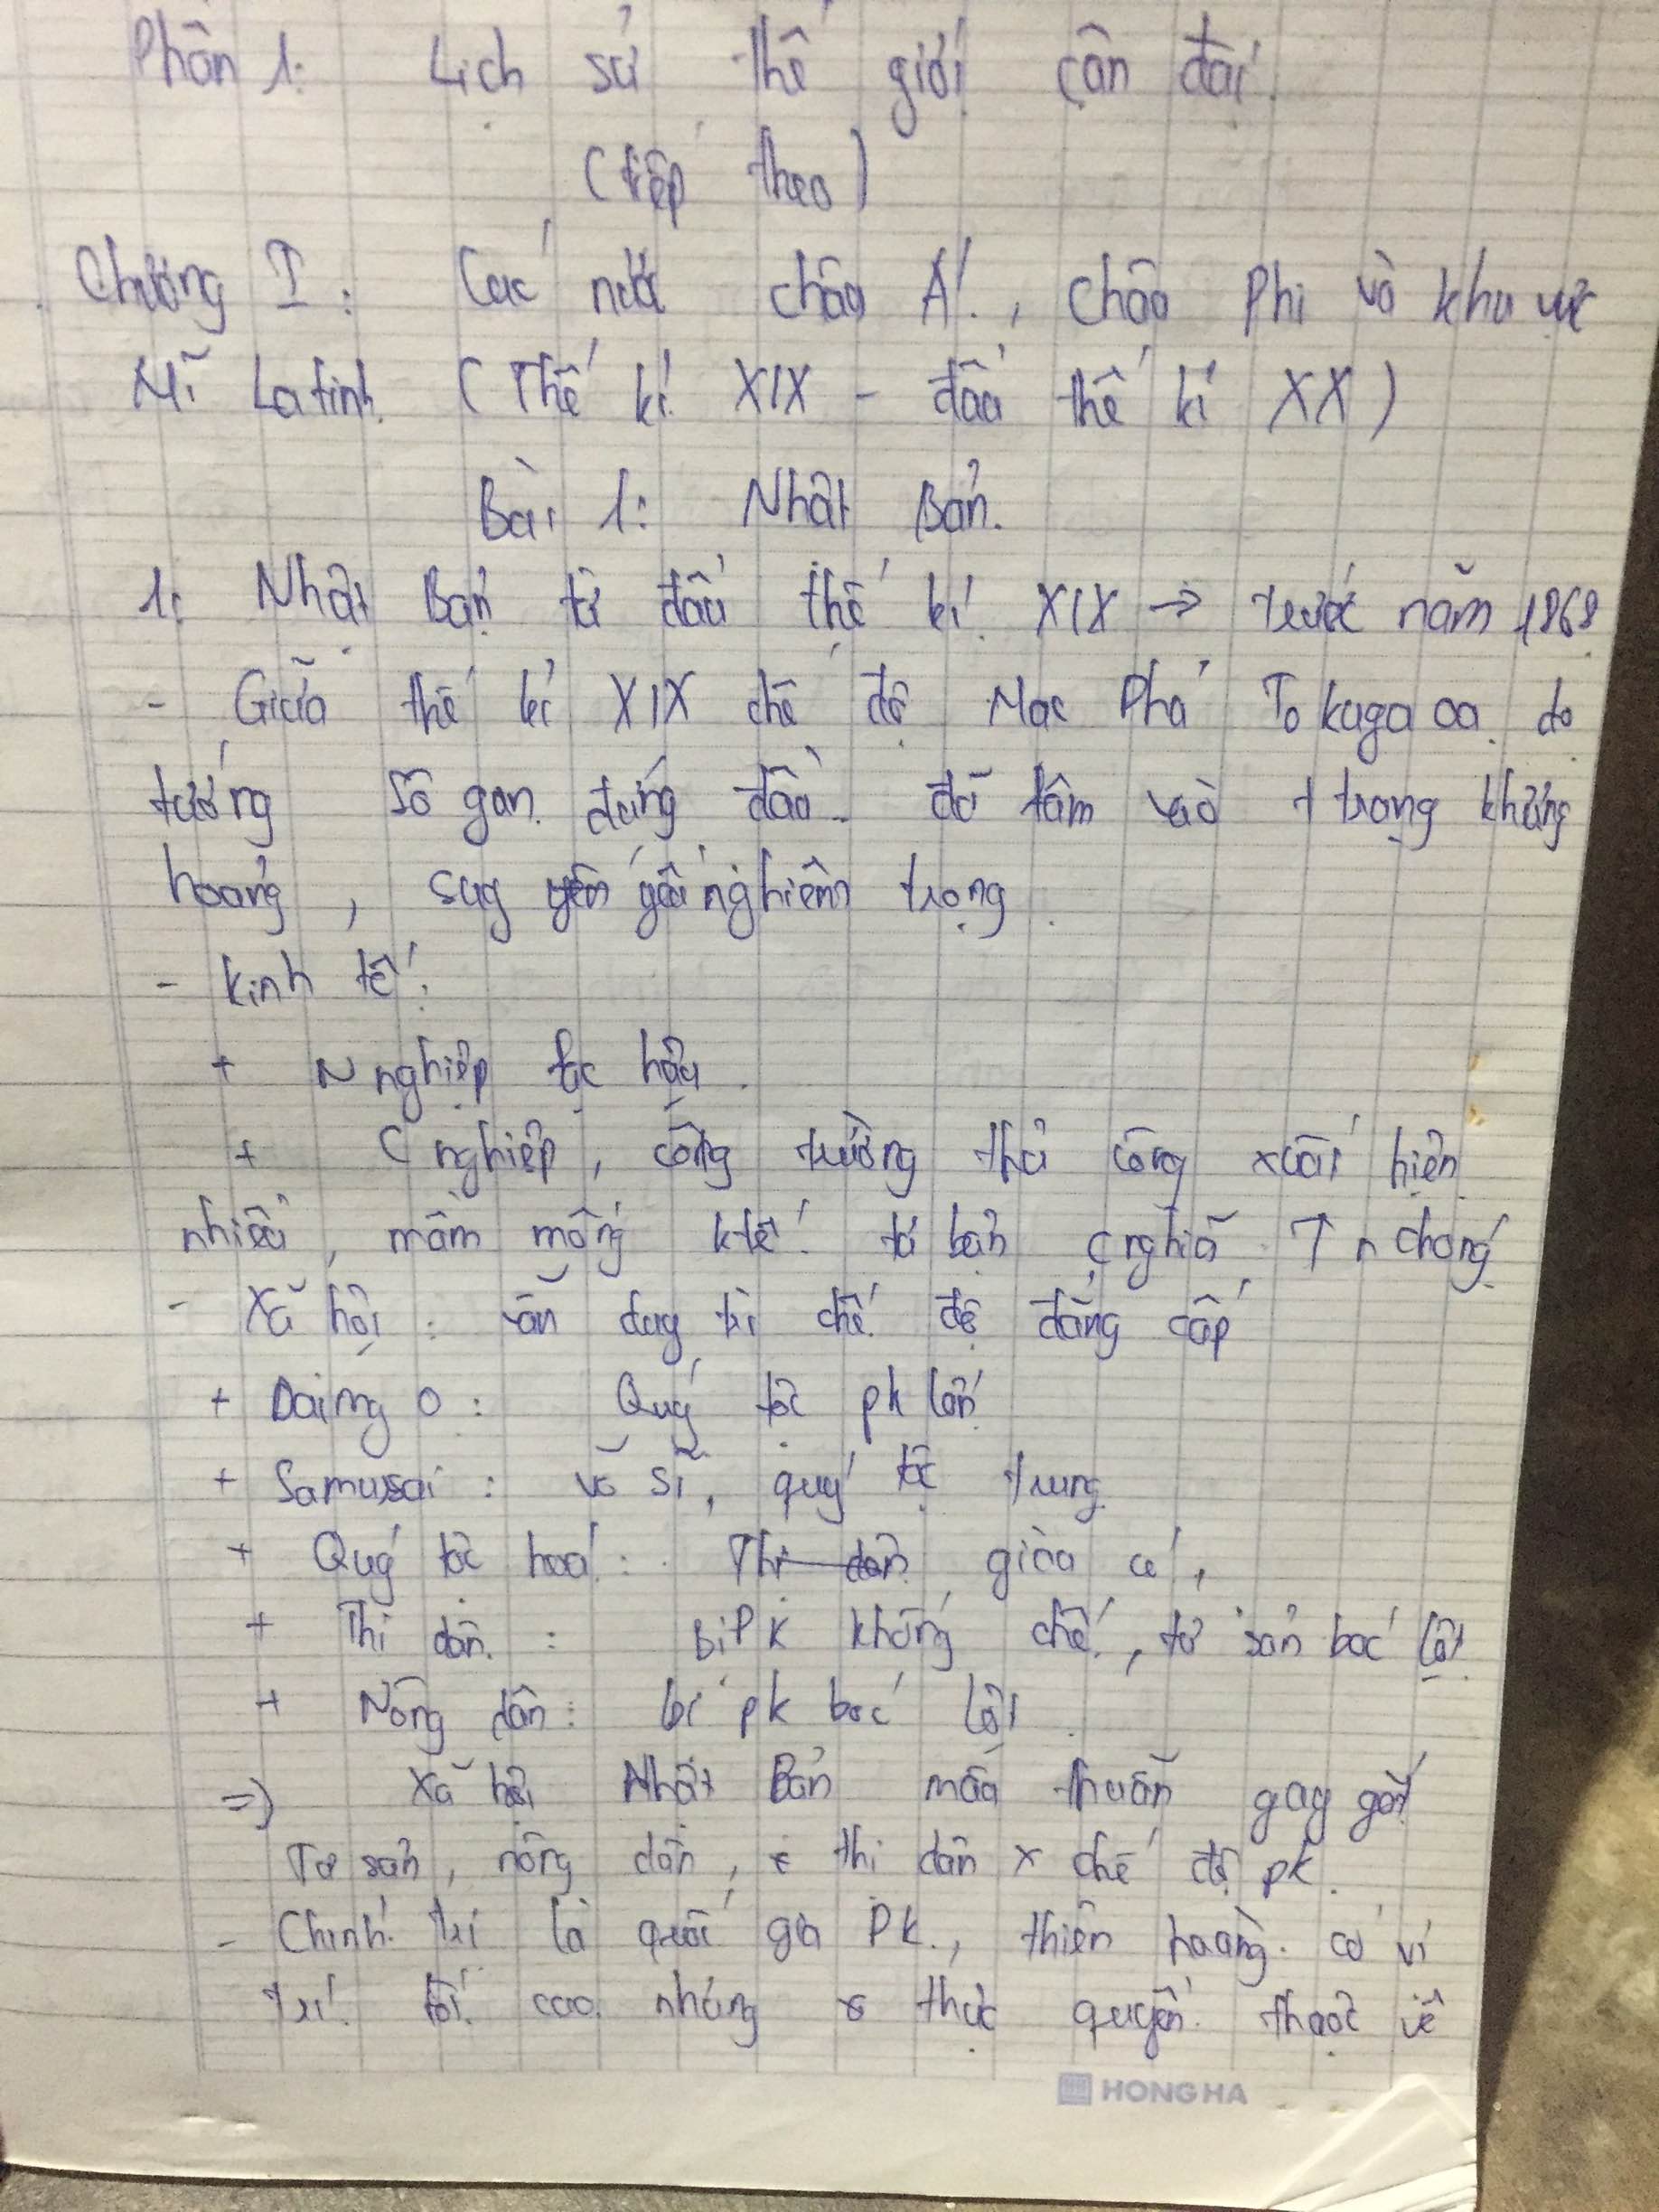 Phần 1: Lịch sử thế giới cận đại
(tiếp theo)
Chương I: Các nước châu Á, châu Phi và khu vực
Mĩ Latinh (Thế kỉ XIX - đầu thế kỉ XX)
Bài 1: Nhật Bản.
1: Nhật Bản từ đầu thế kỉ XIX → trước năm 1868
- Giữa thế kỉ XIX chế độ Mạc Phủ Tokugaoa do
tướng Sô gun đứng đầu đã lâm vào t trạng khủng
hoảng, suy yếu nghiêm trọng.
- Kinh tế:
+ N nghiệp lạc hậu.
+ C nghiệp, công trường thủ công xuất hiện
nhiều, mầm mống ktế tư bản c nghĩa ↑ n chóng
- Xã hội: vẫn duy trì chế độ đẳng cấp
+ Daimyo: Quý tộc pk lớn
+ Samurai: võ sĩ, quý tộc trung
+ Quý tộc hoá: Thị dân giàu có,
+ Thị dân: bị PK khống chế, tư sản bóc lột
+ Nông dân: bị pk bóc lột.
=> Xã hội Nhật Bản mâu thuẫn gay gắt
Tư sản, nông dân, thị dân x chế độ pk.
- Chính trị là quốc gia PK, thiên hoàng có vị
trí tối cao nhưng thực quyền thuộc về
HONG HA